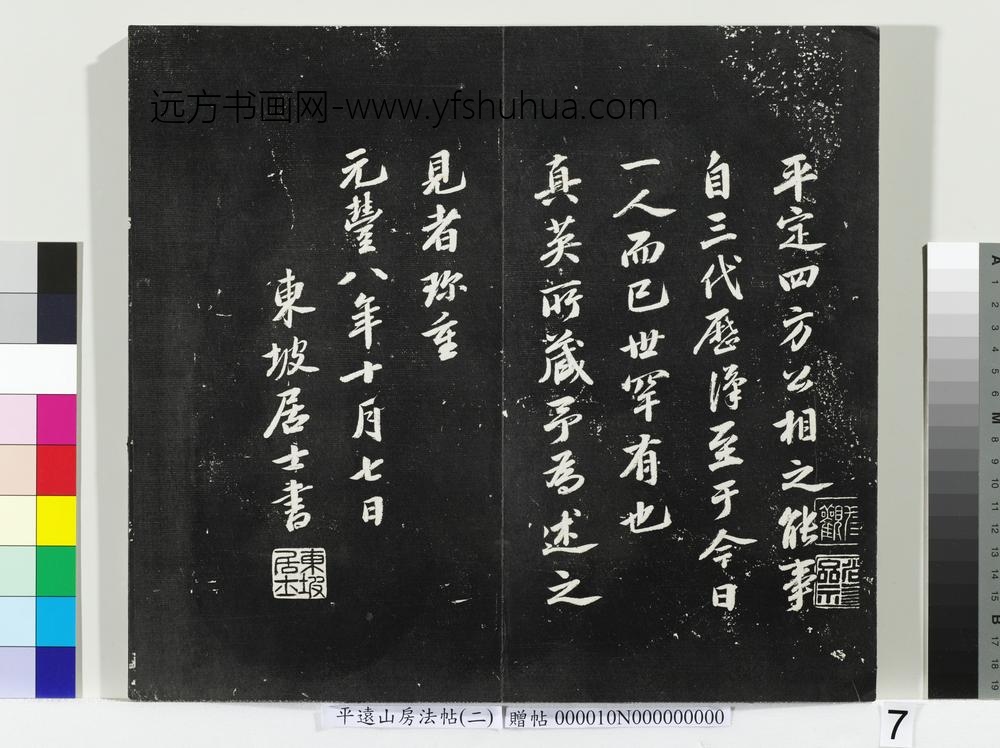 远方书画网-www.yfshuhua.com
平定四方公相之能事
自三代歷漢至于今日
一人而已世罕有也
真英所藏予為述之
見者珎重
元豐八年十月七日
東坡居士書
東坡居士
平遠山房法帖(二)
贈帖 000010N000000000
7
A 1 2 3 4 5 6 M 8 9 10 11 12 13 14 15 B 17 18 19